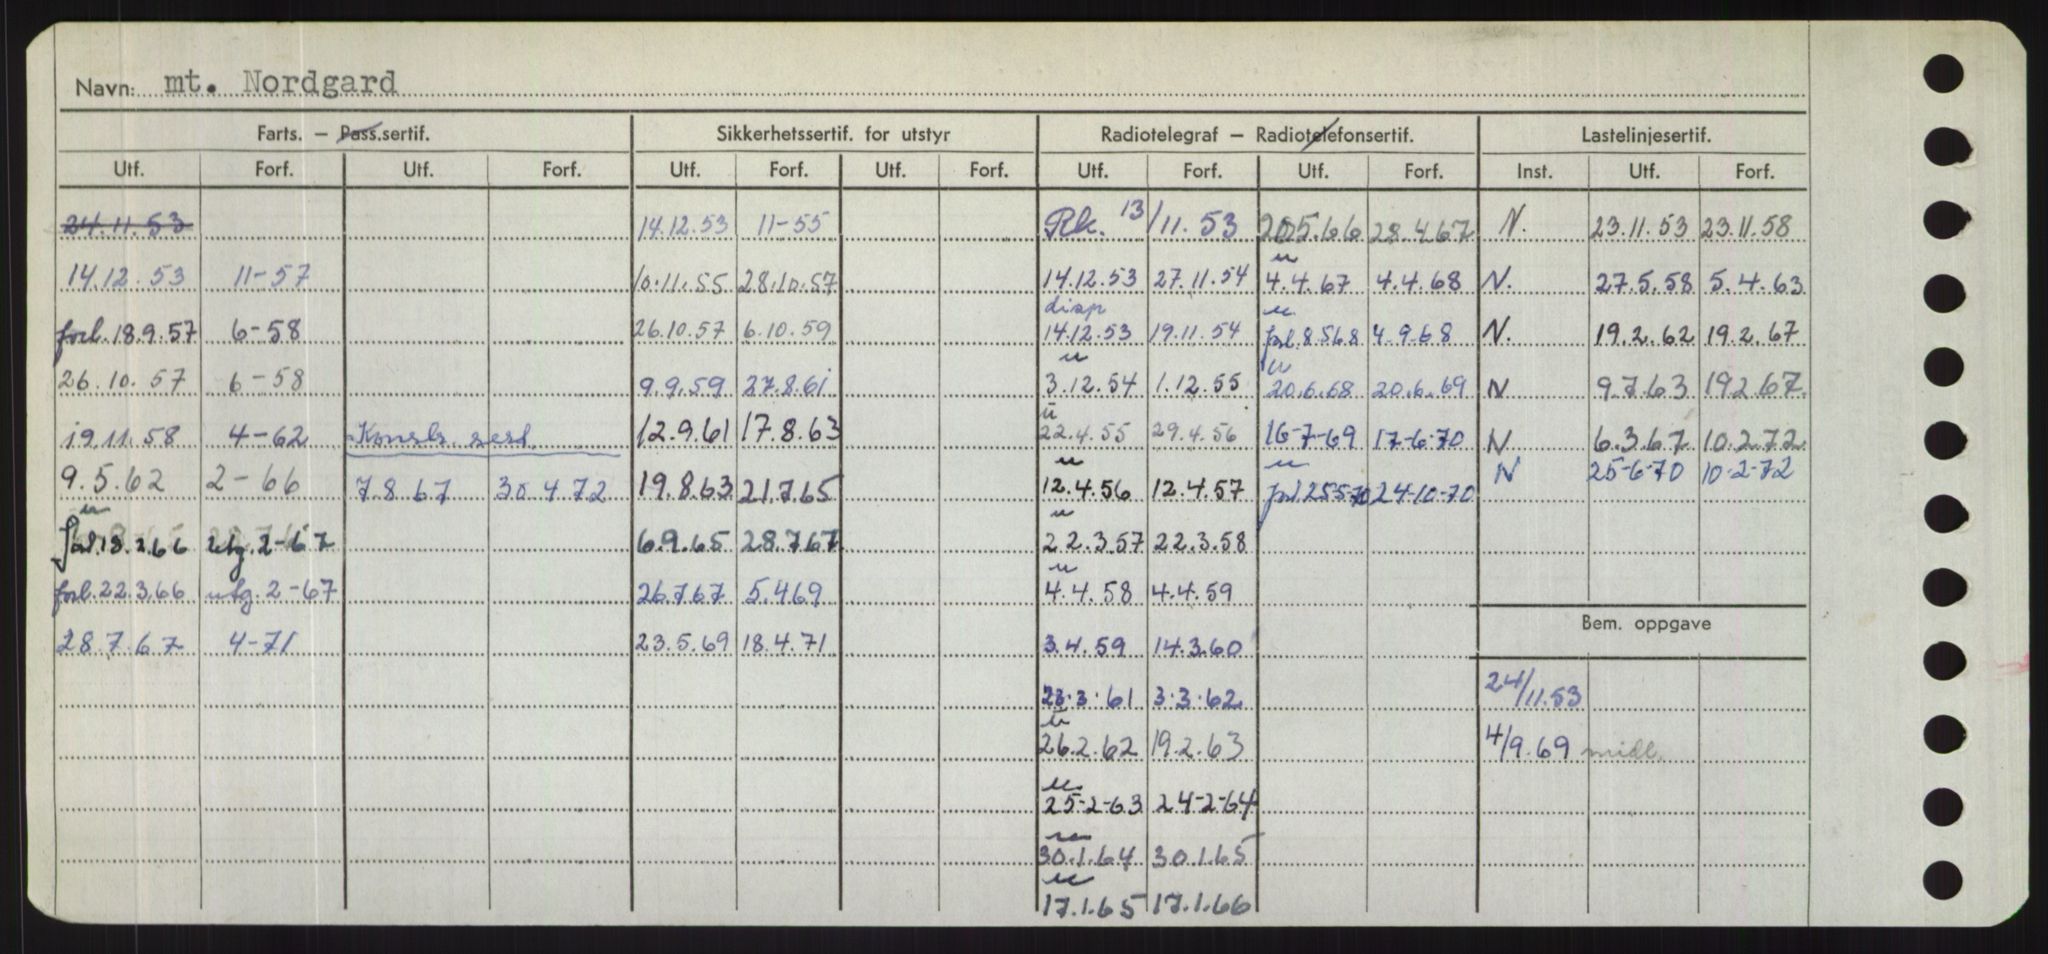 Navn: mt. Nordgard
Farts. — Pass.sertif. Sikkerhetssertif. for utstyr Radiotelegraf — Radiotelefonsertif. Lastelinjesertif.
Utf. Forf. Utf. Forf. Utf. Forf. Utf. Forf. Utf. Forf. Utf. Forf. Inst. Utf. Forf.
24.11.53 14.12.53 11-55 Rk. 13/11.53 20.5.66 28.4.67 N. 23.11.53 23.11.58
u
14.12.53 11-57 10.11.55 28.10.57 14.12.53 27.11.54 4.4.67 4.4.68 N. 27.5.58 5.4.63
disp u
forl. 18.9.57 6-58 26.10.57 6.10.59 14.12.53 19.11.54 forl. 8.5.68 4-9-68 N. 19.2.62 19.2.67
u u
26.10.57 6-58 9.9.59 27.8.61 3.12.54 1.12.55 20.6.68 20.6.69 N 9.7.63 19.2.67
u
19.11.58 4-62 Konstr. sert. 12.9.61 17.8.63 22.4.55 29.4.56 16-7-69 17-6-70 N 6.3.67 10.2.72
u u
9.5.62 2-66 7.8.67 30.4.72 19.8.63 21.7.65 12.4.56 12.4.57 forl 25-5-70 24-10-70 N 25-6-70 10-2-72
u u
forl. 18.2.66 utg. 2-67 6.9.65 28.7.67 22.3.57 22.3.58
u
forl. 22.3.66 utg. 2-67 26.7.67 5.4.69 4.4.58 4.4.59
Bem. oppgave
28.7.67 4-71 23.5.69 18.4.71 3.4.59 14.3.60
23.3.61 3.3.62 24/11.53
u
26.2.62 19.2.63 4/9.69 midl.
u
25-2-63 24-2-64
u
30.1.64 30.1.65
u
17.1.65 17.1.66